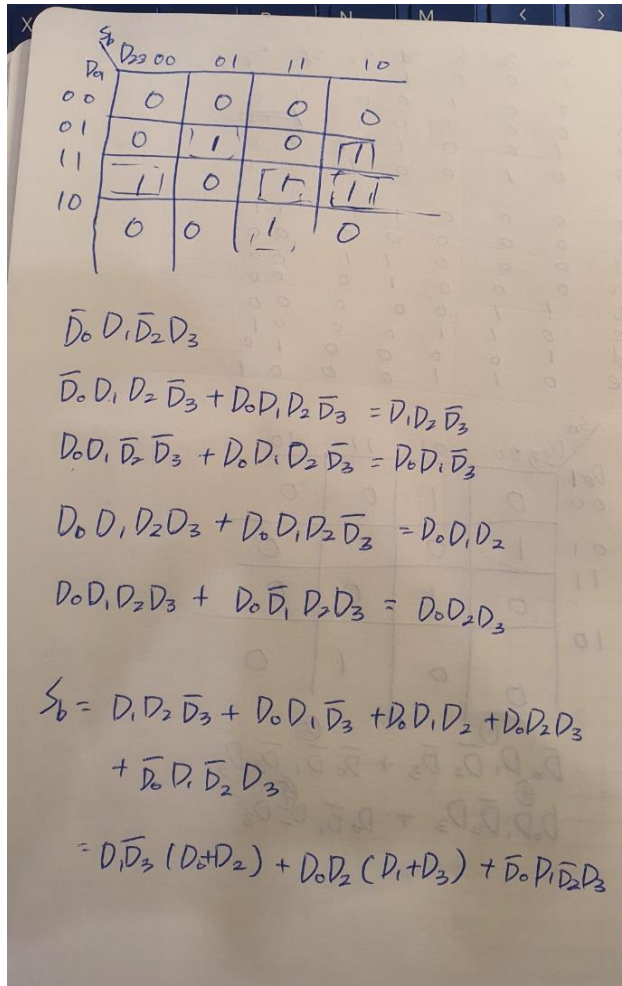 X R N M < >
S_b D₂₃ 00 01 11 10
D₀₁
00 0 0 0 0
01 0 1 0 1
11 1 0 1 1
10 0 0 1 0
D̄₀D₁D̄₂D₃
D̄₀D₁D₂D̄₃ + D₀D₁D₂D̄₃ = D₁D₂D̄₃
D₀D₁D̄₂D̄₃ + D₀D₁D₂D̄₃ = D₀D₁D̄₃
D₀D₁D₂D₃ + D₀D₁D₂D̄₃ = D₀D₁D₂
D₀D₁D₂D₃ + D₀D̄₁D₂D₃ = D₀D₂D₃
S_b = D₁D₂D̄₃ + D₀D₁D̄₃ + D₀D₁D₂ + D₀D₂D₃
+ D̄₀D₁D̄₂D₃
= D₁D̄₃(D₀+D₂) + D₀D₂(D₁+D₃) + D̄₀D₁D̄₂D₃